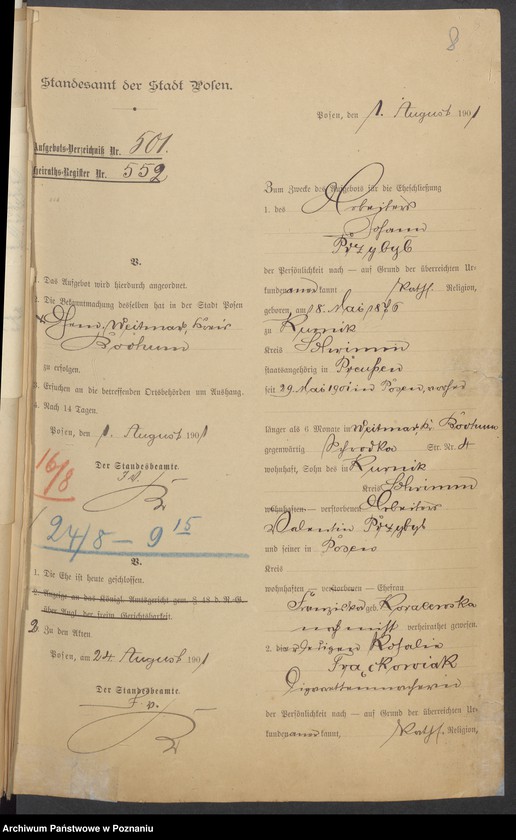 8
Standesamt der Stadt Posen.
Posen, den 1. August 1901
Aufgebots-Verzeichniß Nr. 501.
Heiraths-Register Nr. 552
V.
1. Das Aufgebot wird hierdurch angeordnet.
2. Die Bekanntmachung desselben hat in der Stadt Posen
Weitmar, Kreis
Bochum
zu erfolgen.
3. Ersuchen an die betreffenden Ortsbehörden um Aushang.
4. Nach 14 Tagen.
Posen, den 1. August 1901
Der Standesbeamte.
16/8
24/8 – 9 15
V.
1. Die Ehe ist heute geschlossen.
2. Anzeige an das Königl. Amtsgericht gem. § 48 d. R.-G.
über Angl. der freiw. Gerichtsbarkeit.
2 Zu den Akten
Posen, am 24 August 1901
Der Standesbeamte.
Zum Zwecke des Aufgebots für die Eheschließung
1. des Arbeiters
Johann
Przybyl
der Persönlichkeit nach — auf Grund der überreichten Ur-
kunden anerkannt Kath. Religion,
geboren, am 18. Mai 1876
zu Kurnik
Kreis Schrimm
staatsangehörig in Preußen
seit 29 Mai 1901 in Posen, vorher
länger als 6 Monate in Weitmar, Kr. Bochum
gegenwärtig Schrodka Str. Nr. 4
wohnhaft, Sohn des in Kurnik
Kreis Schrimm
wohnhaften — verstorbenen Arbeiters
Valentin Przybyl
und seiner in Posen
Kreis
wohnhaften — verstorbenen — Ehefrau
Franziska geb. Kovalewska
noch nicht verheirathet gewesen.
2. die ledigen Rosalie
Frąckowiak
Cigarettenmacherin
der Persönlichkeit nach — auf Grund der überreichten Ur-
kunden anerkannt, Kath. Religion,
Archiwum Państwowe w Poznaniu